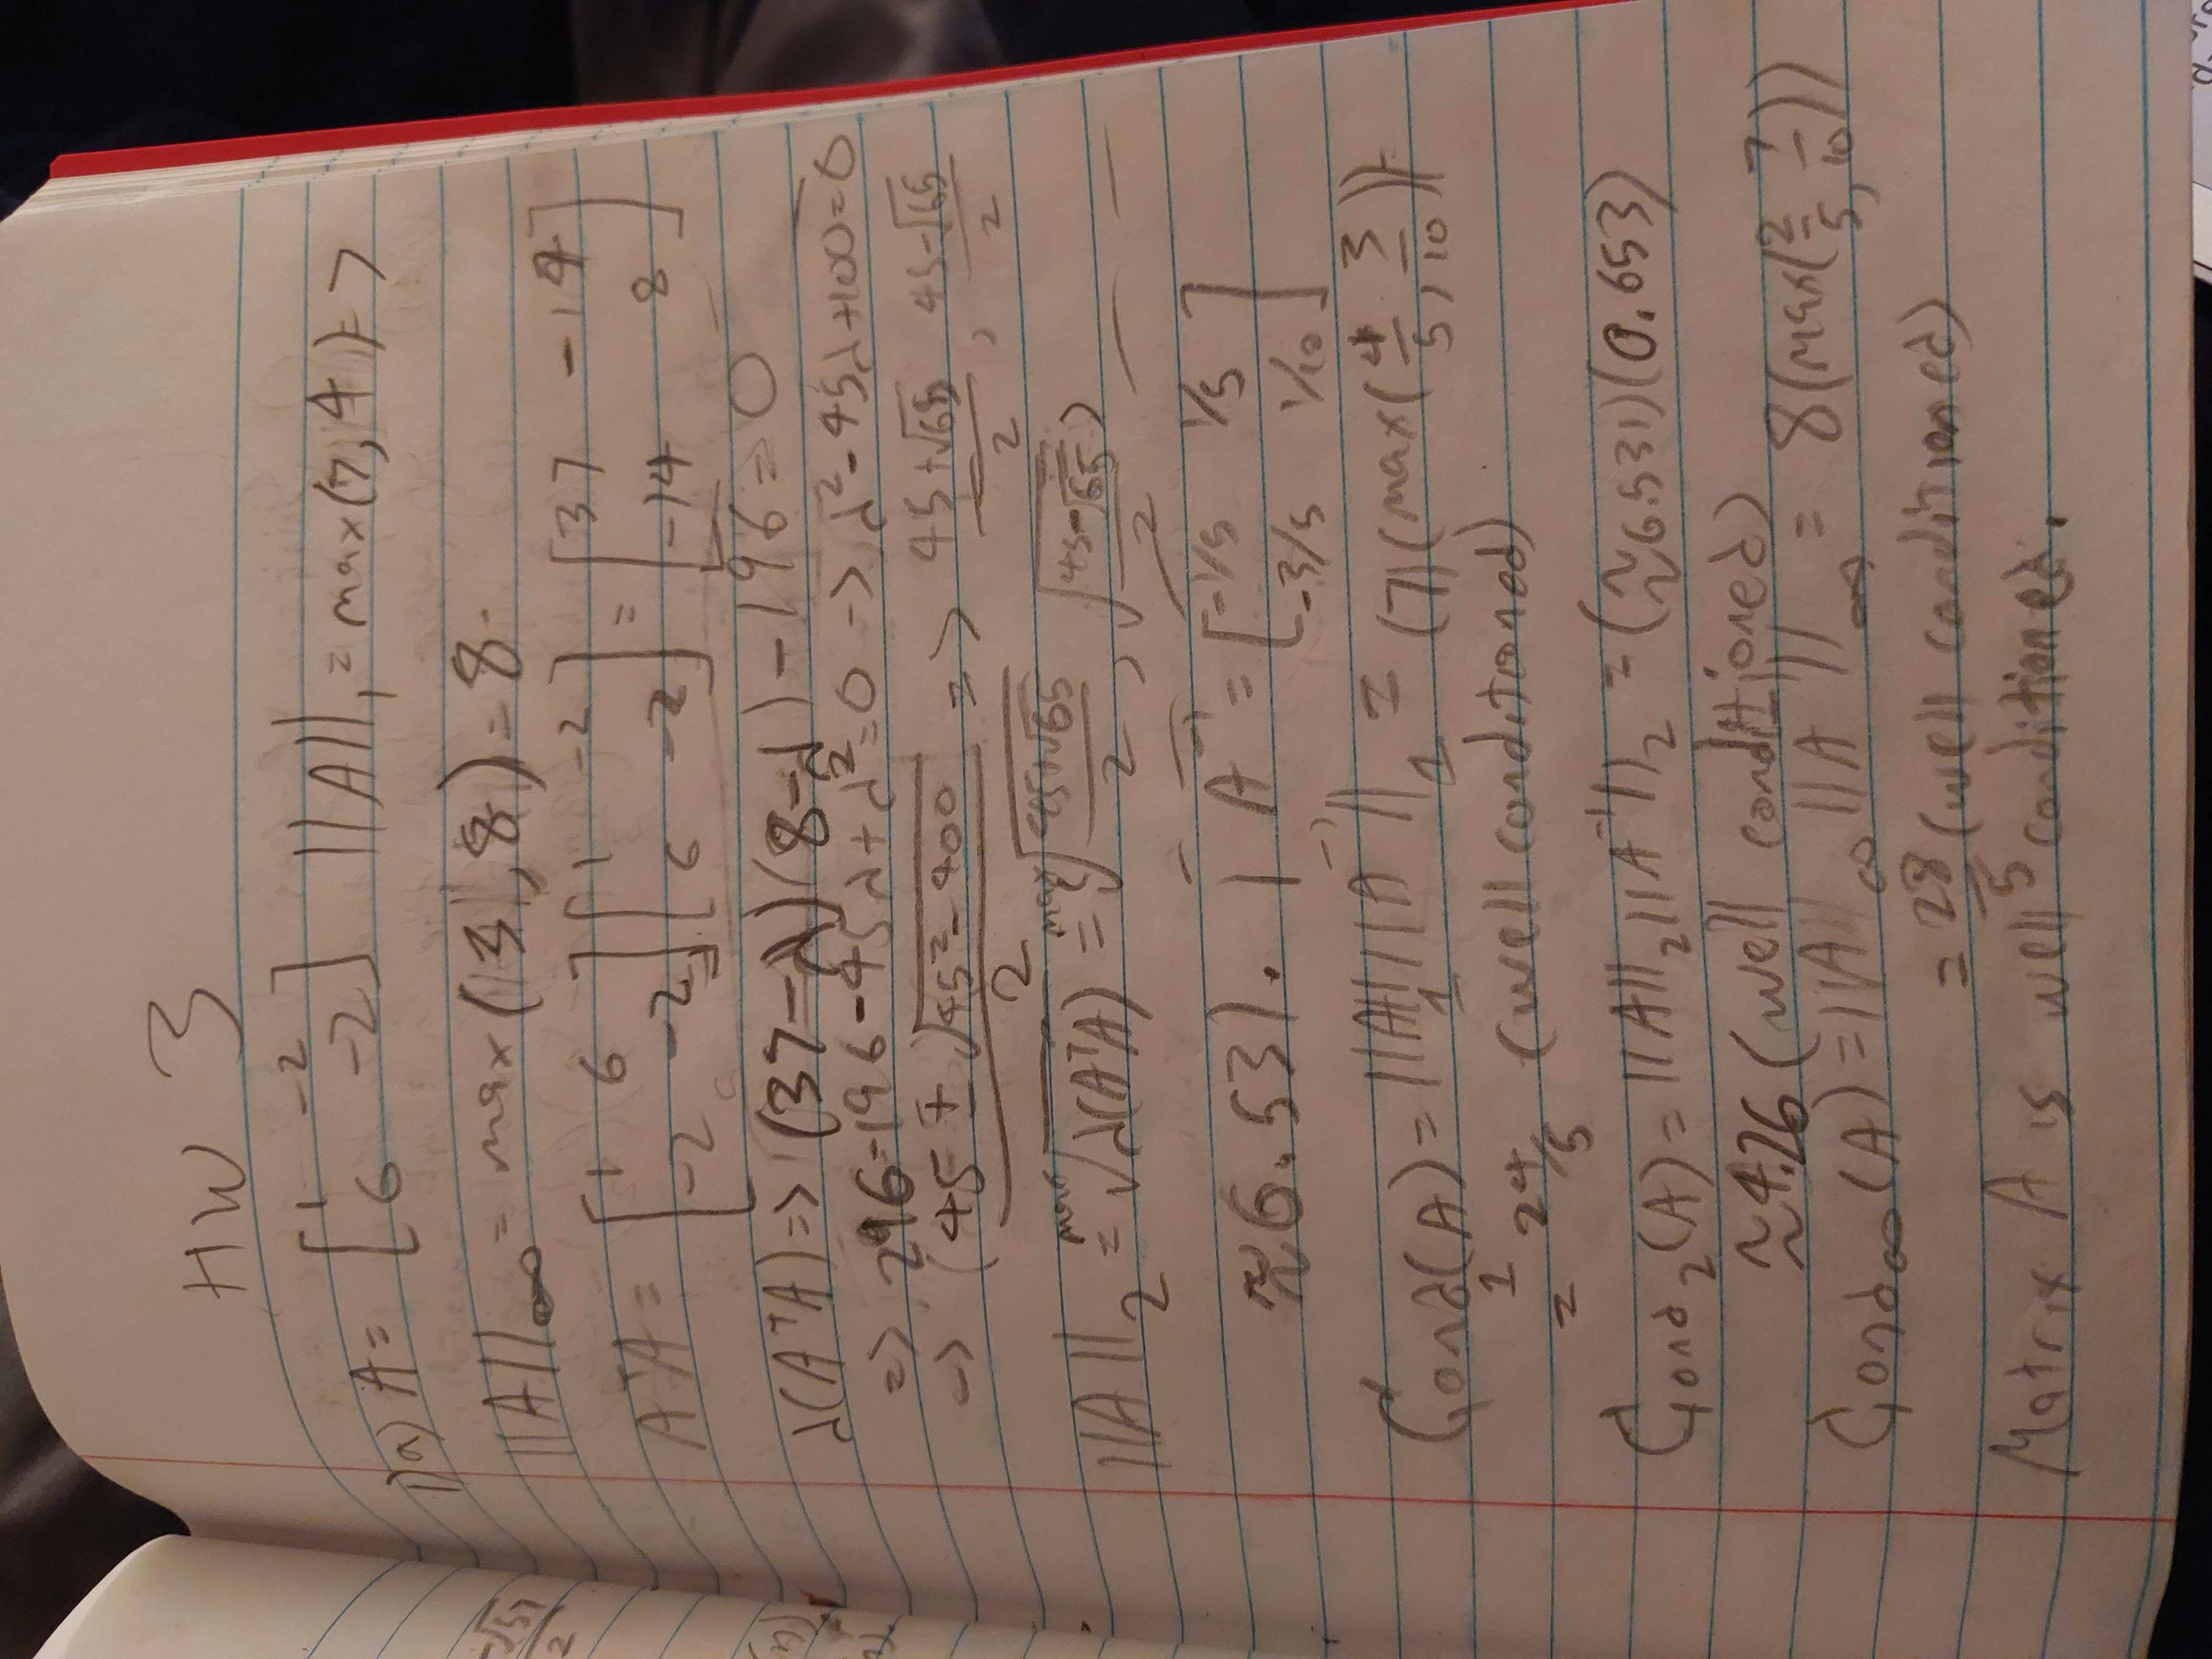 HW 3
1)a) A = [1 -2; 6 -2] ||A||₁ = max(7, 4) = 7
||A||∞ = max(|3|, 8) = 8.
AᵀA = [1 6; -2 -2] [1 -2; 6 -2] = [37 -14; -14 8]
λ(AᵀA) => (37-λ)(8-λ) - 196 = 0
=> 296-196-45λ+λ² = 0 -> λ²-45λ+100=0
-> (45 ± √(45²-400))/2 => (45+√65)/2, (45-√65)/2
||A||₂ = max √λ(AᵀA) = max(√((45+√65)/2), √((45-√65)/2))
≈6.531. | A⁻¹ = [-1/5 1/5; -3/5 1/10]
Cond₁(A) = ||A||₁||A⁻¹||₁ = (7)(max(4/5, 3/10)) =
= 24/5 (well conditioned)
Cond₂(A) = ||A||₂||A⁻¹||₂ = (≈6.531)(0.653)
≈4.26 (well conditioned)
Cond∞(A) = ||A||∞ ||A⁻¹||∞ = 8(max(2/5, 7/10))
= 28/5 (well conditioned)
Matrix A is well conditioned.
-√57
2